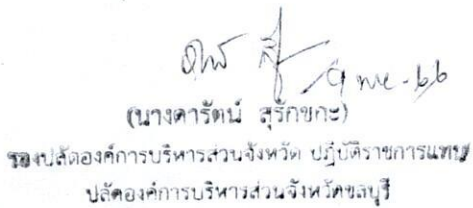 9 พย. 66
(นางดารัตน์ สุรักขกะ)
รองปลัดองค์การบริหารส่วนจังหวัด ปฏิบัติราชการแทน
ปลัดองค์การบริหารส่วนจังหวัดชลบุรี